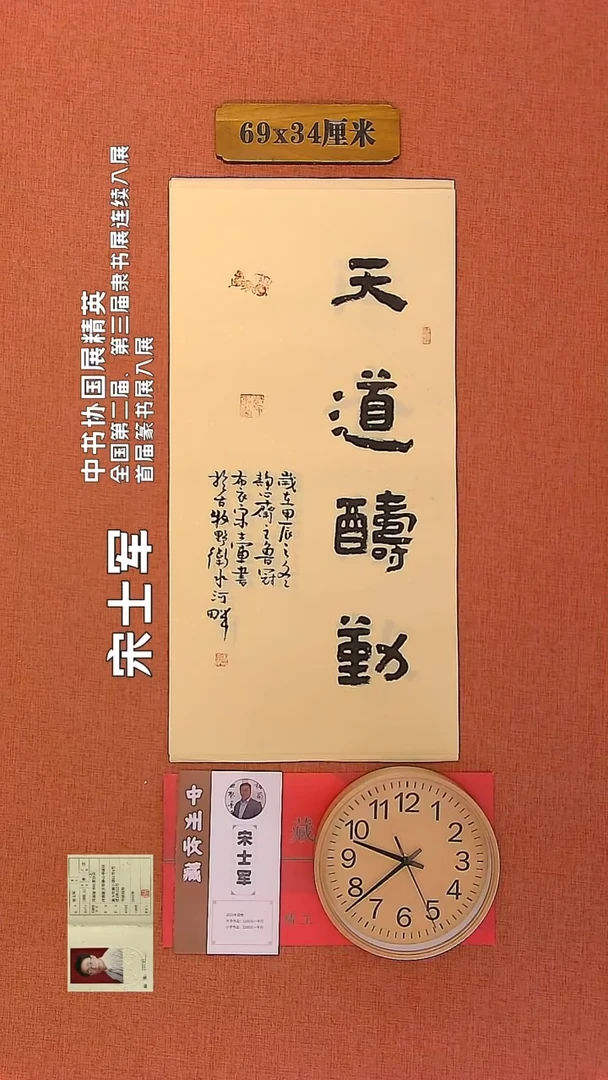 69x34厘米
天道醻勤
歲在甲辰之冬
靜心齋主魯冠
布衣宋士軍書
於古牧野衛水河畔
中书协国展精英
全国第二届、第三届隶书展连续入展
首届篆书展入展
宋士军
中米收藏
宋士军
藏
12
1
2
3
4
5
6
7
8
9
10
11